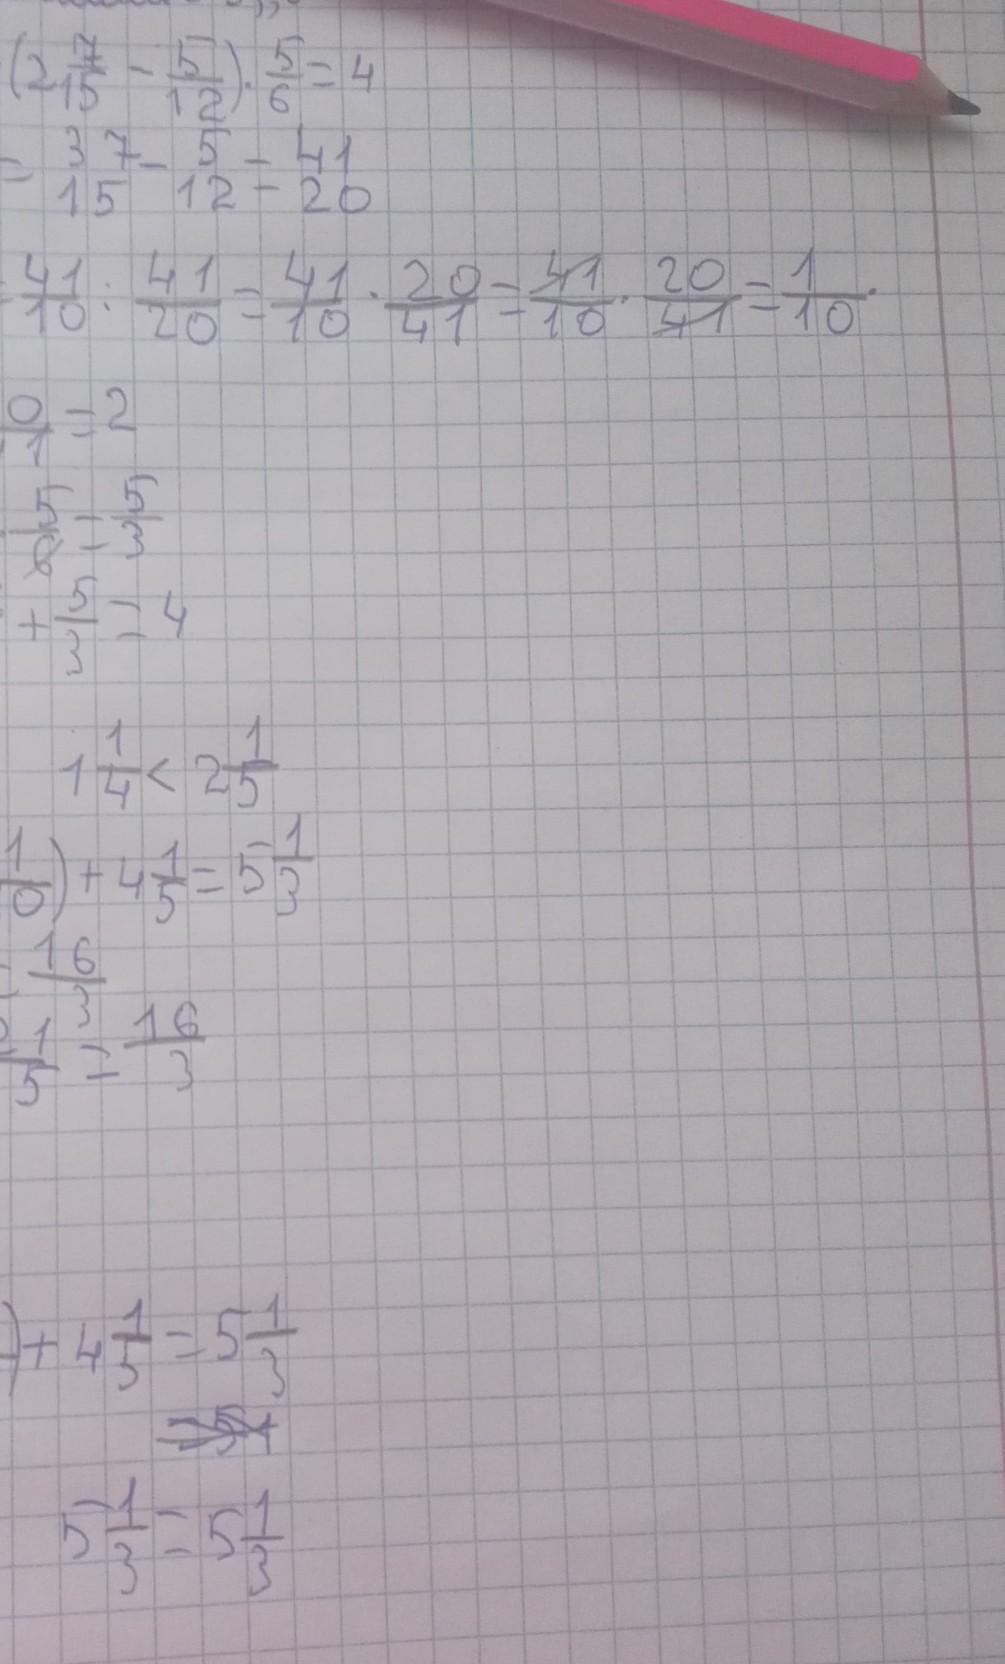 (2 7/15 - 5/12) · 5/6 = 4
= 37/15 - 5/12 = 41/20
41/10 : 41/20 = 41/10 · 20/41 = 41/10 · 20/41 = 1/10 ·
0/1 = 2
5/6 = 5/3
+ 5/3 = 4
1 1/4 < 2 1/5
1/0) + 4 1/5 = 5 1/3
= 16/3
1/5 = 16/3
) + 4 1/5 = 5 1/3
5 1/3 = 5 1/3